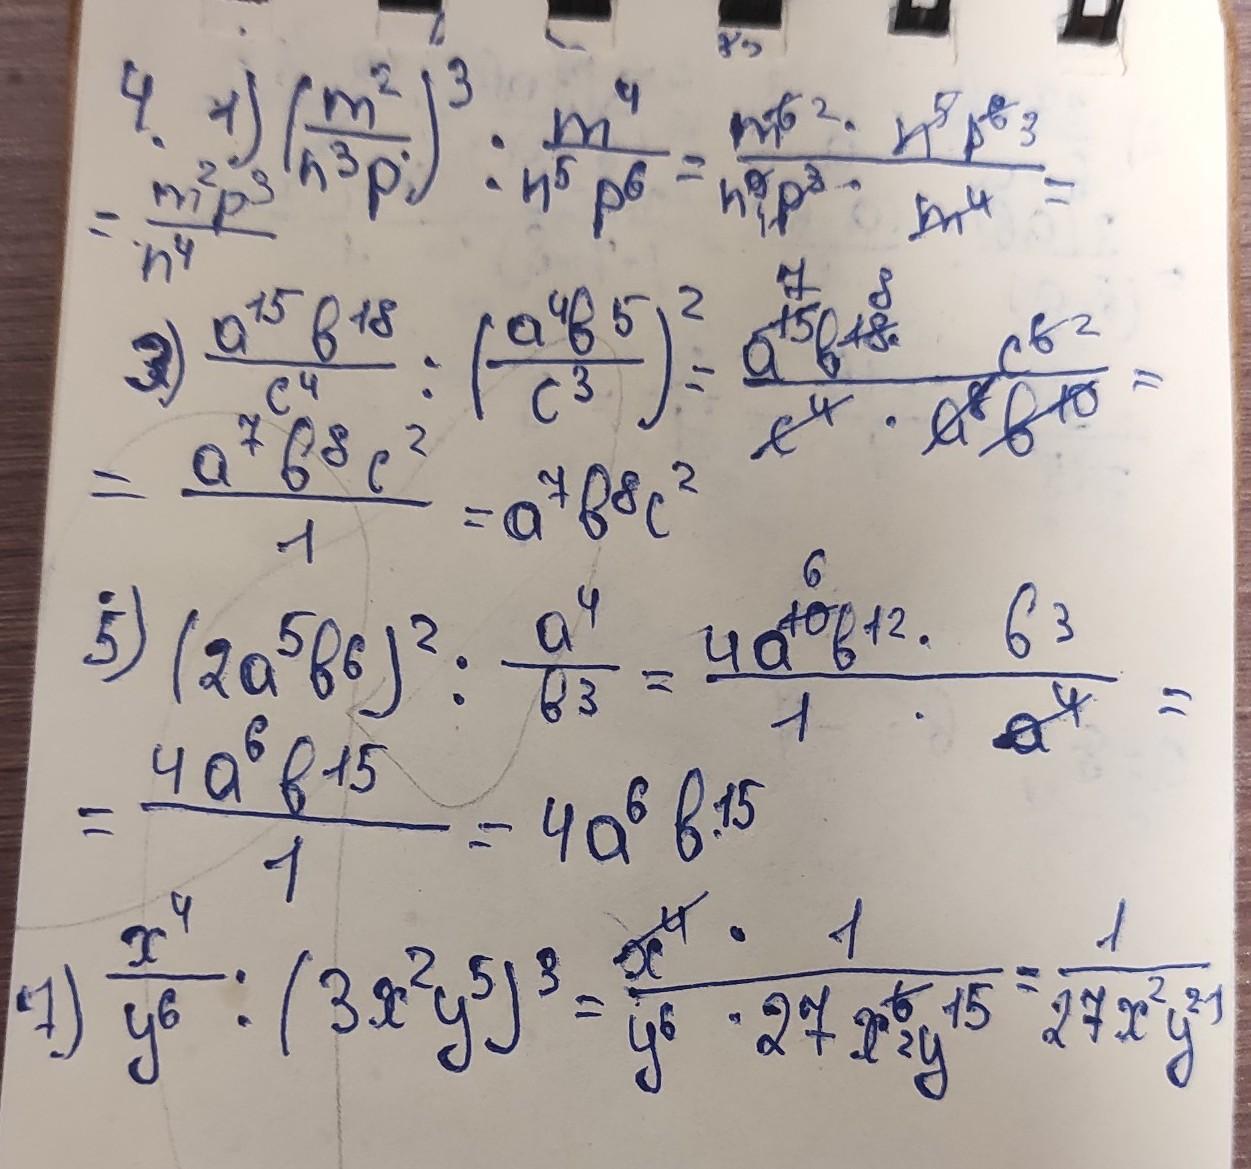 4. 1) (m²/n³p)³ : m⁴/n⁵p⁶ = m⁶ ² · n⁵p⁶ ³/n⁹p³ · m⁴ =
= m²p³/n⁴
3) a¹⁵b¹⁸/c⁴ : (a⁴b⁵/c³)² = a¹⁵ ⁷b¹⁸ ⁸ · c⁶ ²/c⁴ · a⁸b¹⁰ =
= a⁷b⁸c²/1 = a⁷b⁸c²
5) (2a⁵b⁶)² : a⁴/b³ = 4a¹⁰ ⁶b¹² · b³/1 · a⁴ =
= 4a⁶b¹⁵/1 = 4a⁶b¹⁵
7) x⁴/y⁶ : (3x²y⁵)³ = x⁴ · 1/y⁶ · 27x⁶ ₂y¹⁵ = 1/27x²y²¹